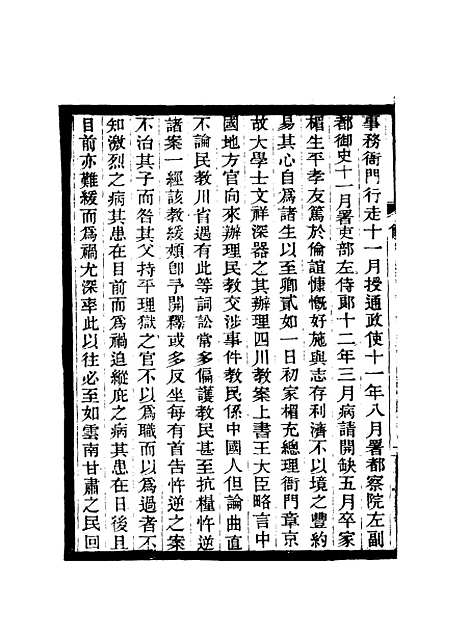 事務衙門行走十一月授通政使十一年八月署都察院左副
都御史十一月署吏部左侍郎十二年三月病請開缺五月卒家
楣生平孝友篤於倫誼慷慨好施與志存利濟不以境之豐約
易其心自爲諸生以至卿貳如一日初家楣充總理衙門章京
故大學士文祥深器之其辦理四川教案上書王大臣略言中
國地方官向來辦理民教交涉事件教民係中國人但論曲直
不論民教川省遇有此等詞訟常多偏護教民甚至抗糧忤逆
諸案一經該教緩頰卽予開釋或多反坐每有首告忤逆之案
不治其子而咎其父持平理獄之官不以爲職而以爲過者不
知激烈之病其患在目前而爲禍追縱庇之病其患在日後且
目前亦難緩而爲禍尤深率此以往必至如雲南甘肅之民回